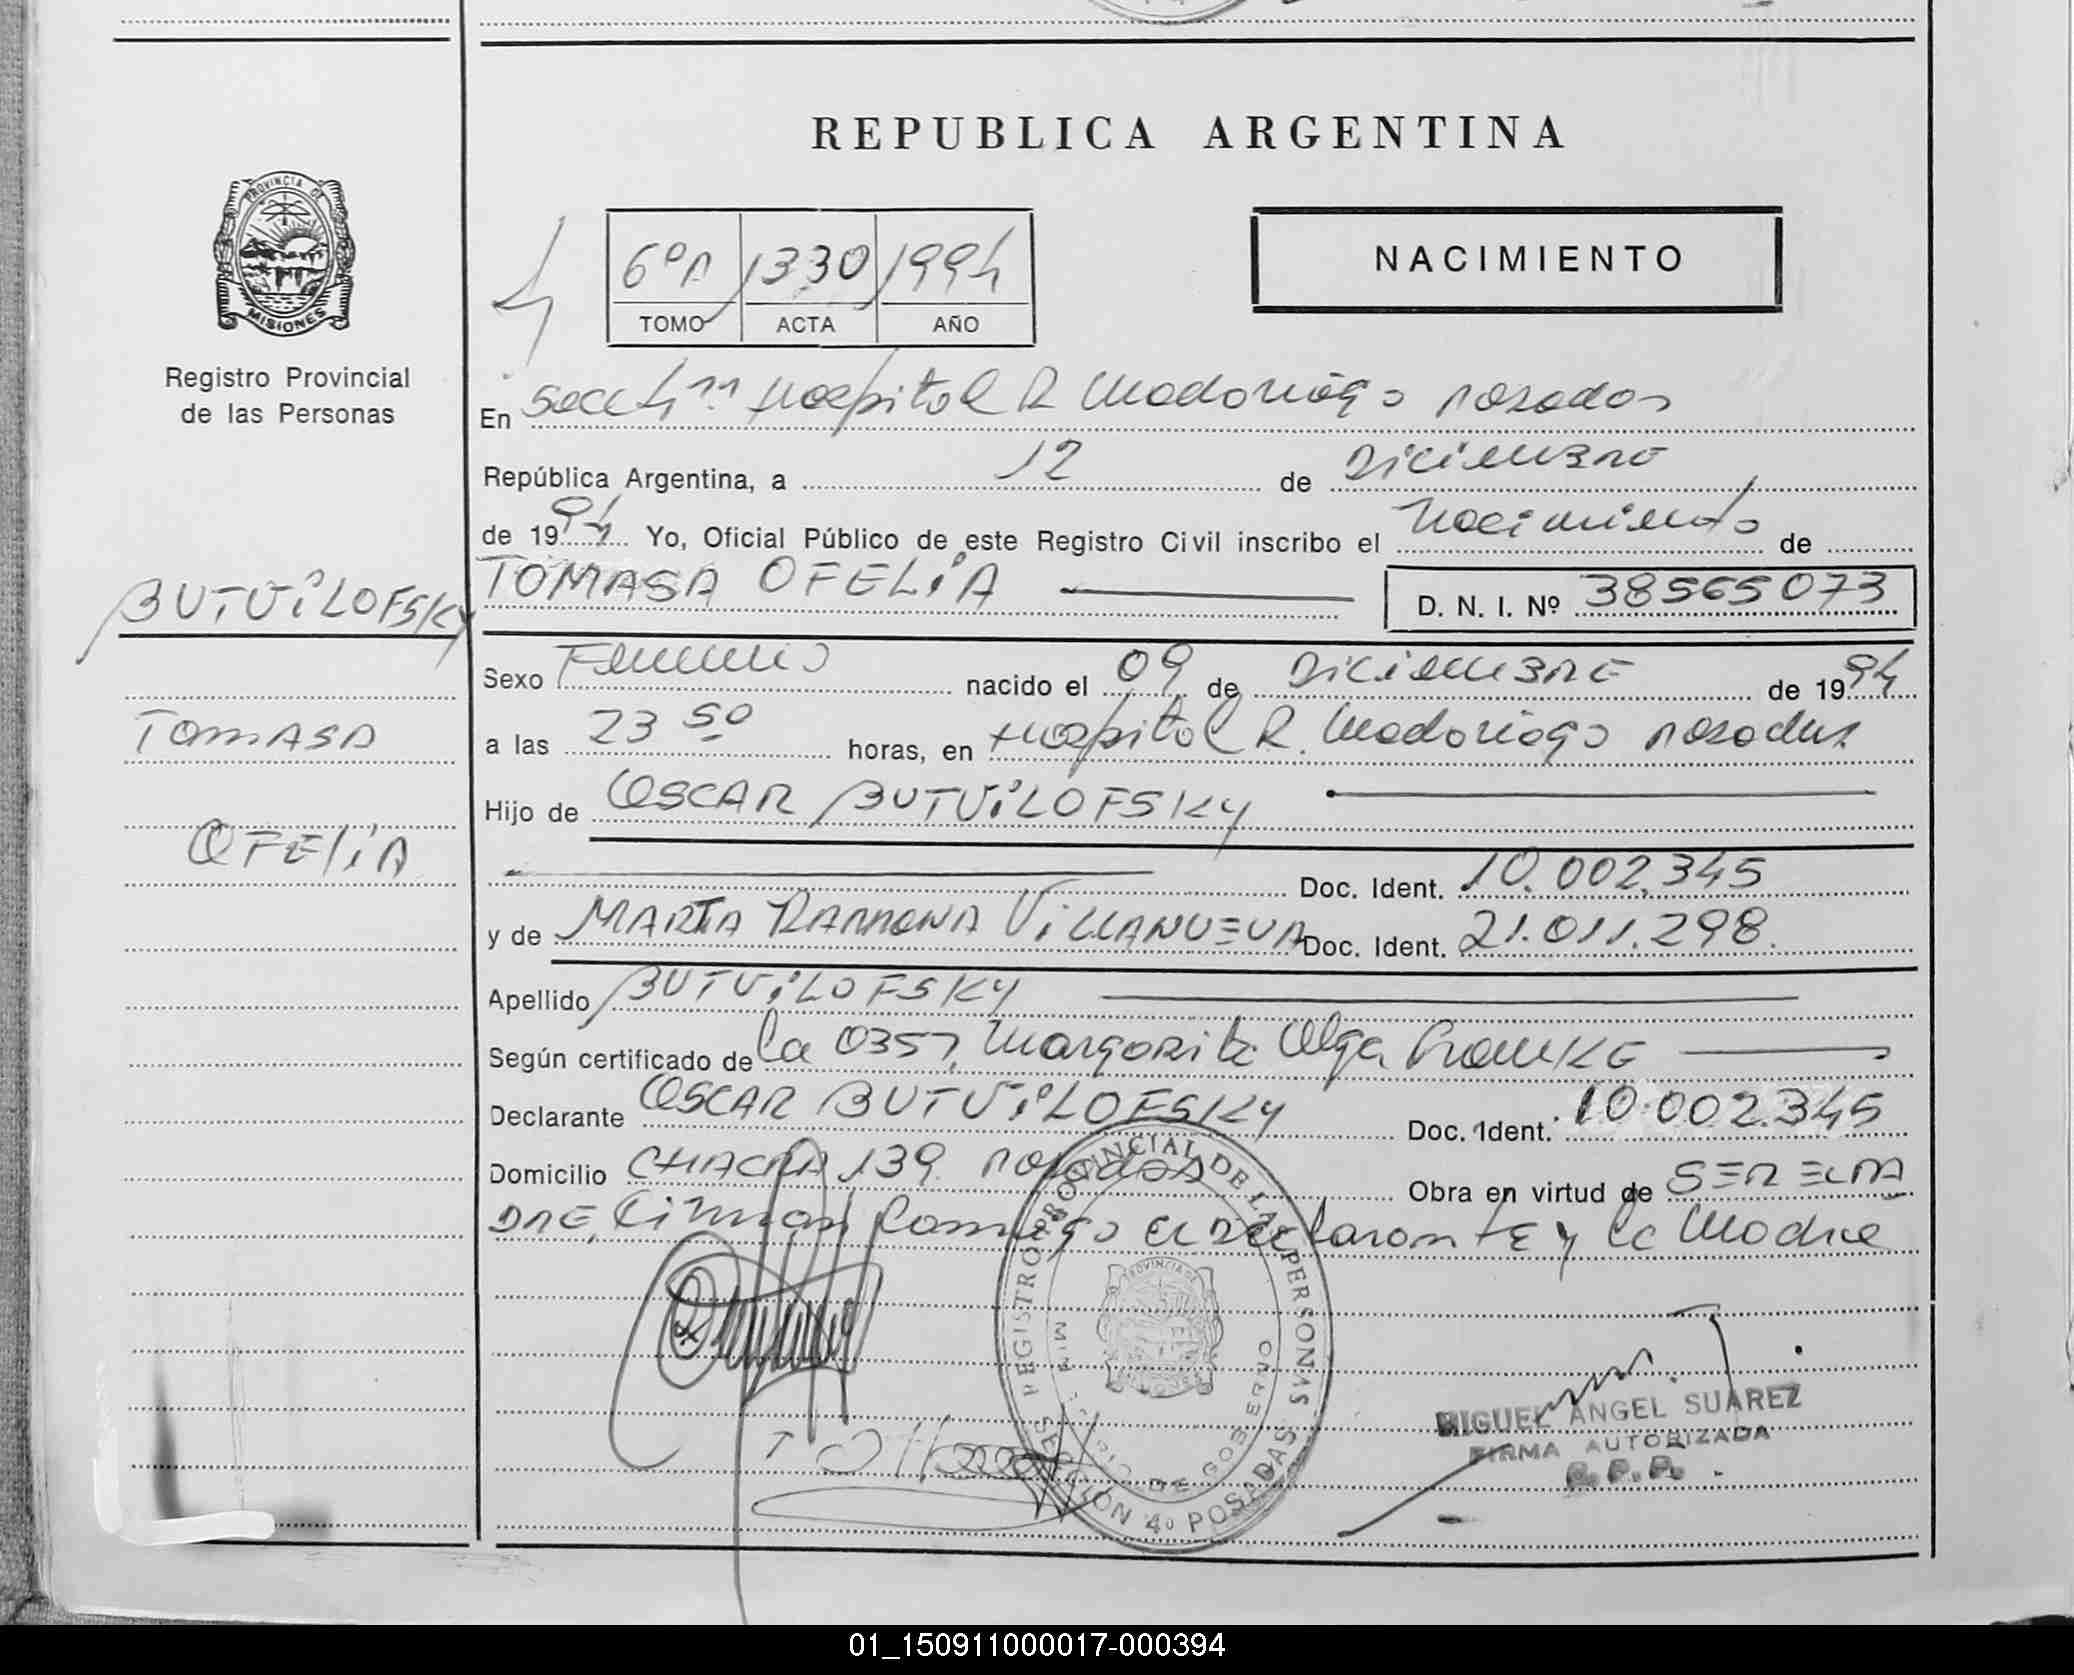 REPUBLICA ARGENTINA
PROVINCIA DE
MISIONES
Registro Provincial
de las Personas
6º A 1330 1994
TOMO ACTA AÑO
NACIMIENTO
En Secc 4ta Hospital R Madariaga Posadas
República Argentina, a 12 de Diciembre
de 1994 Yo, Oficial Público de este Registro Civil inscribo el Nacimiento de
TOMASA OFELIA D. N. I. Nº 38565073
BUTVILOFSKY
TOMASA
OFELIA
Sexo Femenino nacido el 09 de Diciembre de 1994
a las 23 50 horas, en Hospital R. Madariaga Posadas
Hijo de OSCAR BUTVILOFSKY
Doc. Ident. 10.002.345
y de MARTA RAMONA VILLANUEVA Doc. Ident. 21.011.298.
Apellido BUTVILOFSKY
Según certificado de la 0357, Margarita Olga
Declarante OSCAR BUTVILOFSKY Doc. Ident. 10.002.345
Domicilio CHACRA 139 Posadas Obra en virtud de SER EL PA
DRE, Firman Conmigo el Declarante y la Madre
REGISTRO PROVINCIAL DE LAS PERSONAS
PROVINCIA DE
MISIONES
MINISTERIO DE GOBIERNO
SECCION 4º POSADAS
MIGUEL ANGEL SUAREZ
FIRMA AUTORIZADA
R.P.P.
01_150911000017-000394